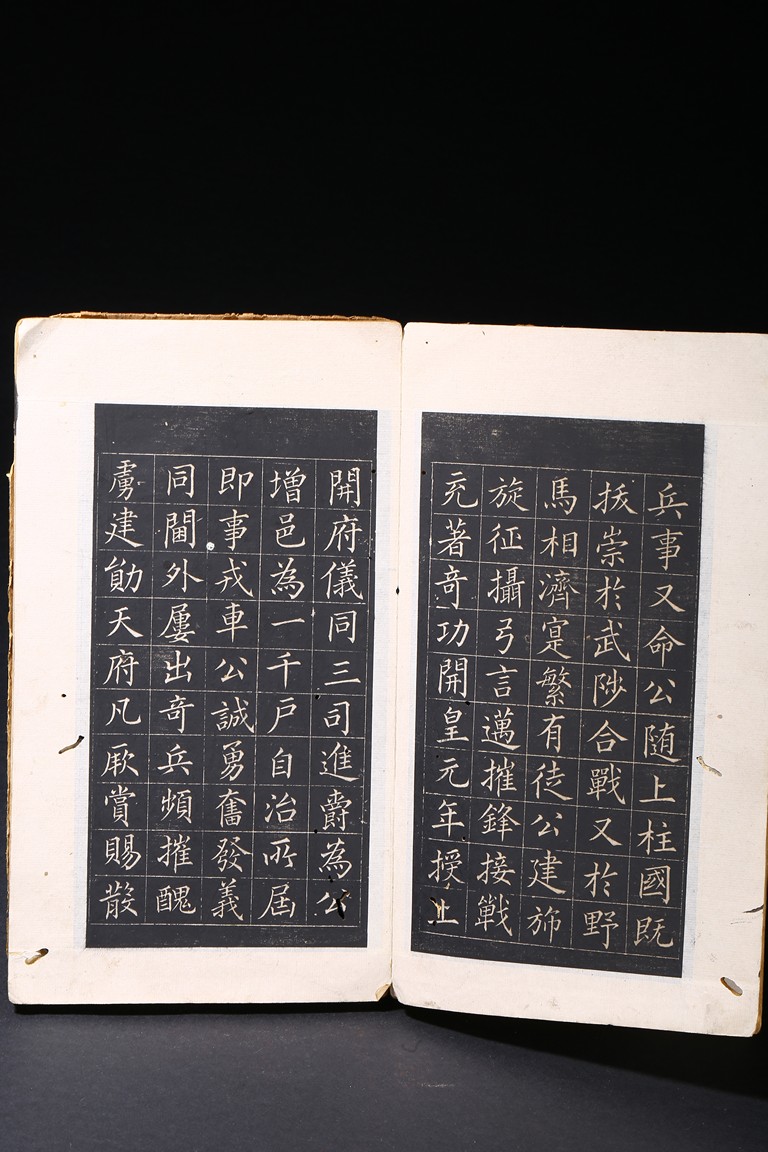 兵事又命公随上柱國既
拔崇於武陟合戰又於野
馬相濟寔繁有徒公建斾
旋征攝弓言邁摧鋒接戰
克著奇功開皇元年授上
開府儀同三司進爵為公
增邑為一千戶自治所届
即事戎車公誠勇奮發義
同閫外屢出奇兵頻摧醜
虜建勛天府凡厥賞賜散